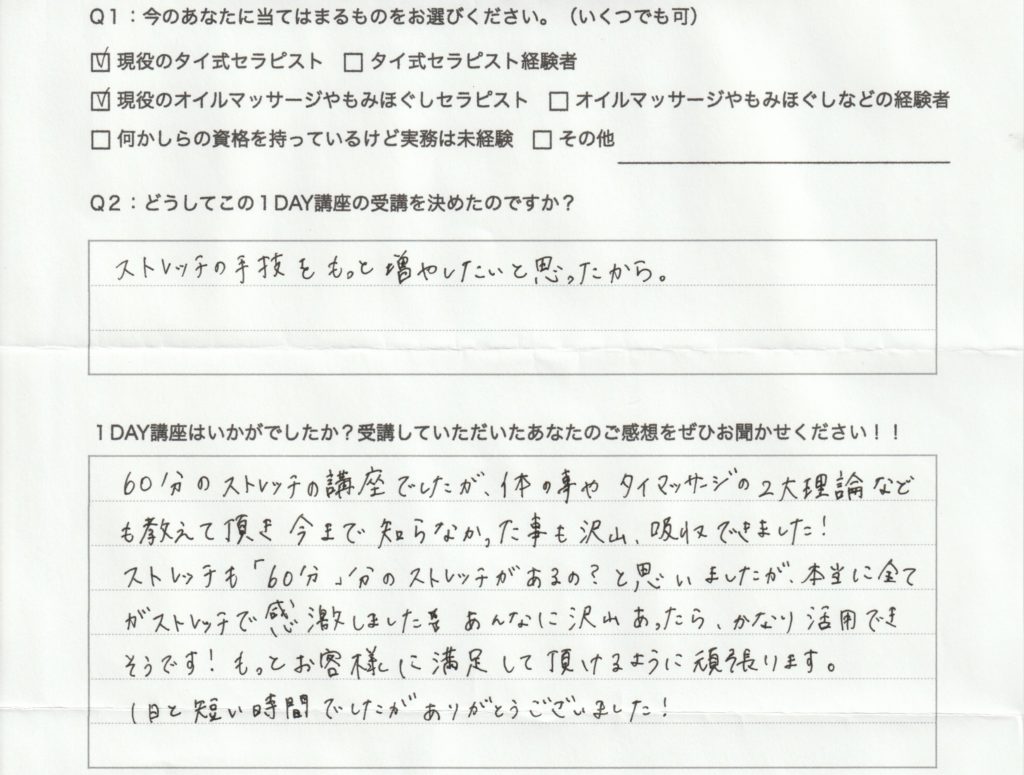 Q1：今のあなたに当てはまるものをお選びください。（いくつでも可）
☑ 現役のタイ式セラピスト □ タイ式セラピスト経験者
☑ 現役のオイルマッサージやもみほぐしセラピスト □ オイルマッサージやもみほぐしなどの経験者
□ 何かしらの資格を持っているけど実務は未経験 □ その他
Q2：どうしてこの１DAY講座の受講を決めたのですか？
ストレッチの手技をもっと増やしたいと思ったから。
１DAY講座はいかがでしたか？受講していただいたあなたのご感想をぜひお聞かせください！！
60分のストレッチの講座でしたが、体の事や タイマッサージの２大理論など
も教えて頂き 今まで知らなかった事も沢山、吸収できました！
ストレッチも「60分」分のストレッチがあるの？と思いましたが、本当に全て
がストレッチで感激しました あんなに沢山あったら、かなり活用でき
そうです！もっとお客様に満足して頂けるように頑張ります。
1日と短い時間でしたがありがとうございました！